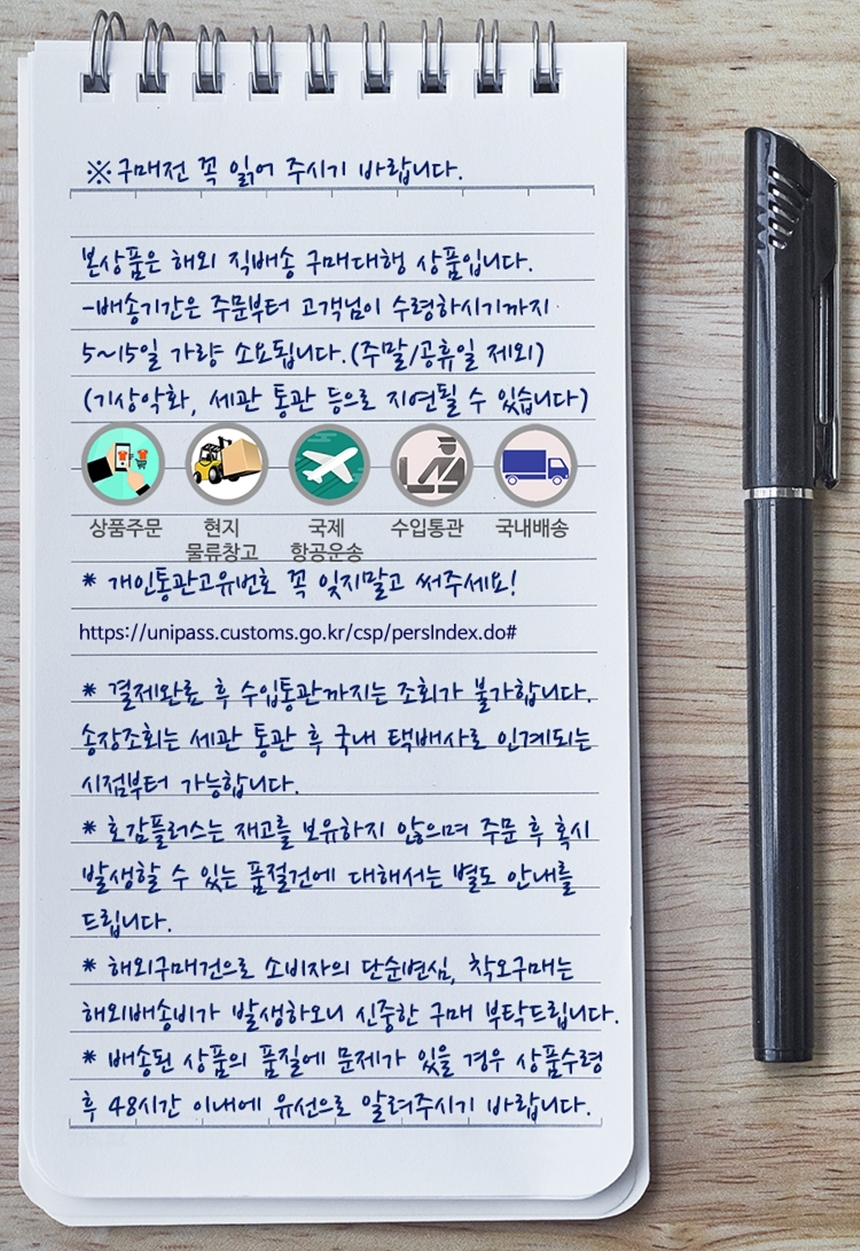 ※구매전 꼭 읽어 주시기 바랍니다.
본상품은 해외 직배송 구매대행 상품입니다.
-배송기간은 주문부터 고객님이 수령하시기까지
5~15일 가량 소요됩니다.(주말/공휴일 제외)
(기상악화, 세관 통관 등으로 지연될 수 있습니다)
상품주문 현지 국제 수입통관 국내배송
물류창고 항공운송
* 개인통관고유번호 꼭 잊지말고 써주세요!
https://unipass.customs.go.kr/csp/persIndex.do#
* 결제완료 후 수입통관까지는 조회가 불가합니다.
송장조회는 세관 통관 후 국내 택배사로 인계되는
시점부터 가능합니다.
* 호감플러스는 재고를 보유하지 않으며 주문 후 혹시
발생할 수 있는 품절건에 대해서는 별도 안내를
드립니다.
* 해외구매건으로 소비자의 단순변심, 착오구매는
해외배송비가 발생하오니 신중한 구매 부탁드립니다.
* 배송된 상품의 품질에 문제가 있을 경우 상품수령
후 48시간 이내에 유선으로 알려주시기 바랍니다.